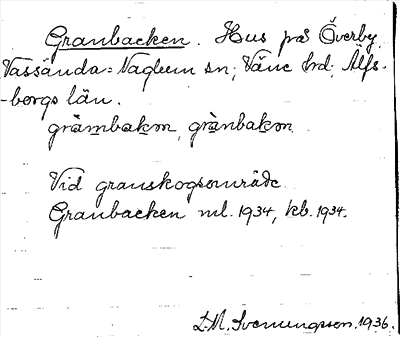 Granbacken. Hus på Överby
Vassända-Naglum sn; Väne hd; Älfs-
-borgs län.
gràmbakən, grànbakən
Vid granskogsområde
Granbacken ml. 1934, kb. 1934.
L.M. Svenungsson. 1936.